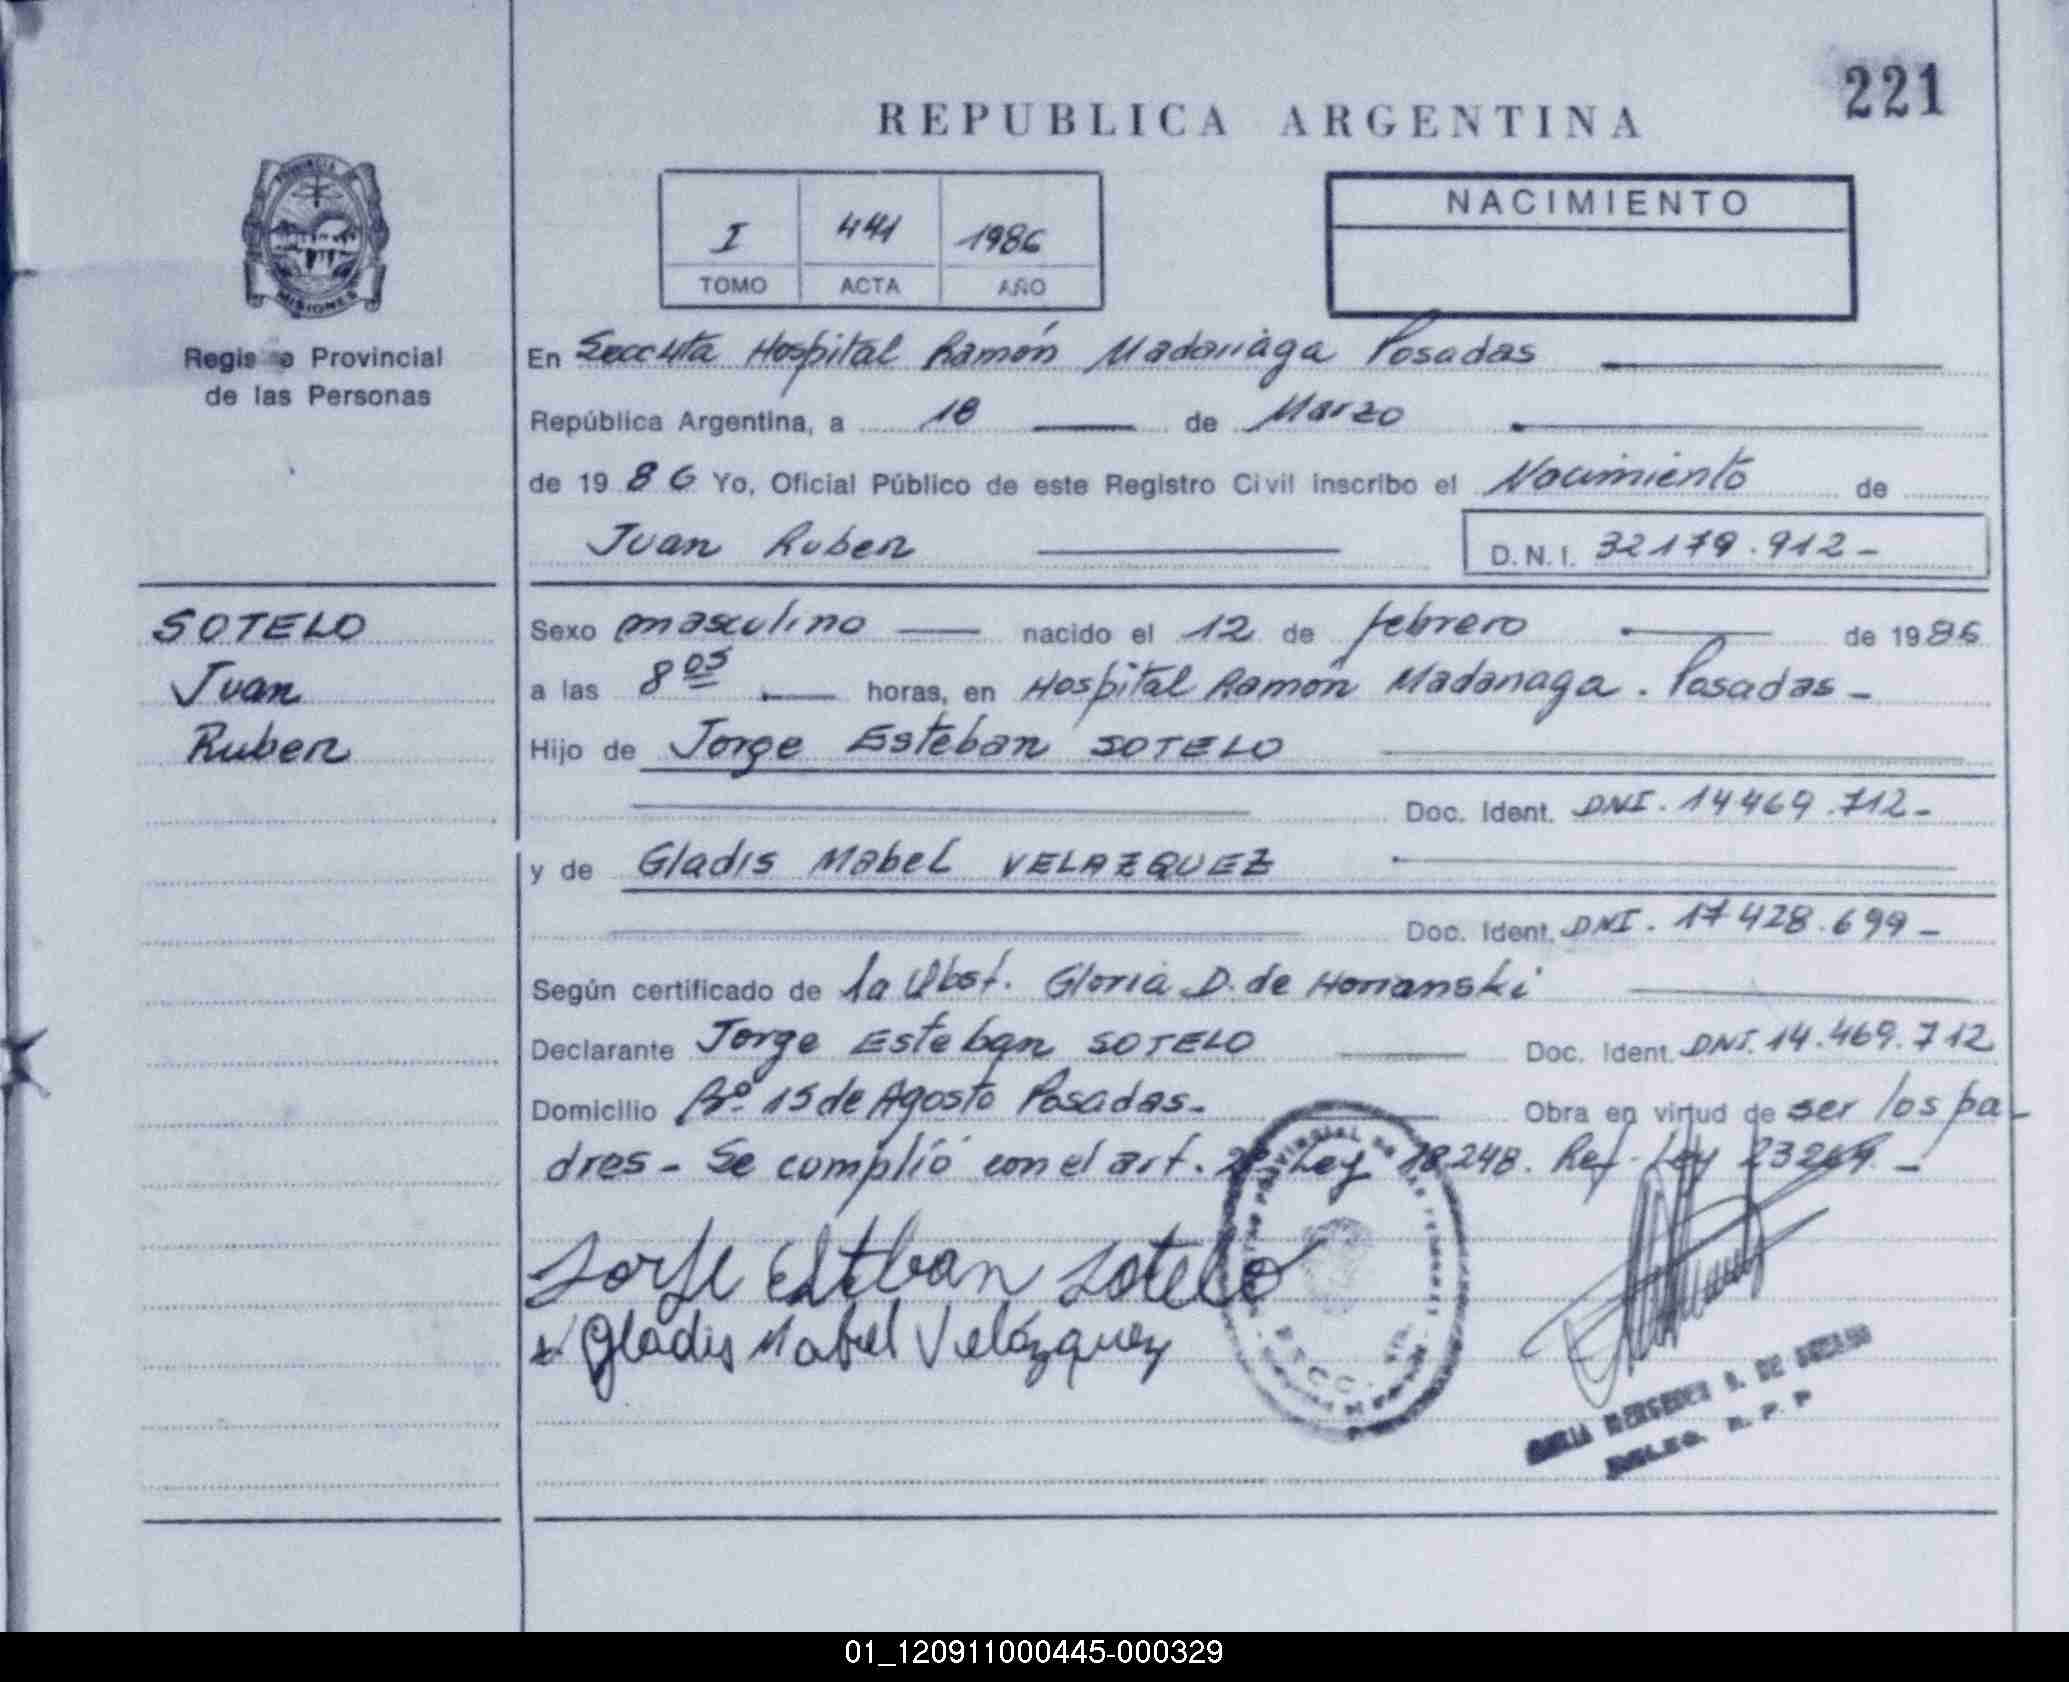 221
REPUBLICA ARGENTINA
PROVINCIA DE
MISIONES
Registro Provincial
de las Personas
I 441 1986
TOMO ACTA AÑO
NACIMIENTO
En Secc 4ta Hospital Ramón Madariaga Posadas
República Argentina, a 18 de Marzo
de 1986 Yo, Oficial Público de este Registro Civil inscribo el Nacimiento de
Juan Ruben D.N.I. 32179.912-
SOTELO
Juan
Ruben
Sexo masculino nacido el 12 de febrero de 1986
a las 8 05 horas, en Hospital Ramón Madariaga. Posadas-
Hijo de Jorge Esteban SOTELO
Doc. Ident. DNI. 14469.712-
y de Gladis Mabel VELAZQUEZ
Doc. Ident. DNI. 17428.699-
Según certificado de la Obst. Gloria D. de
Declarante Jorge Esteban SOTELO Doc. Ident. DNI. 14.469.712
Domicilio Bº 15 de Agosto Posadas.- Obra en virtud de ser los pa-
dres- Se cumplió con el art. Ley 18248. Ref. Ley -
Jorge Esteban Sotelo
Gladis Mabel Velázquez
MERCEDES DE
DELEG. R. P. P
01_120911000445-000329